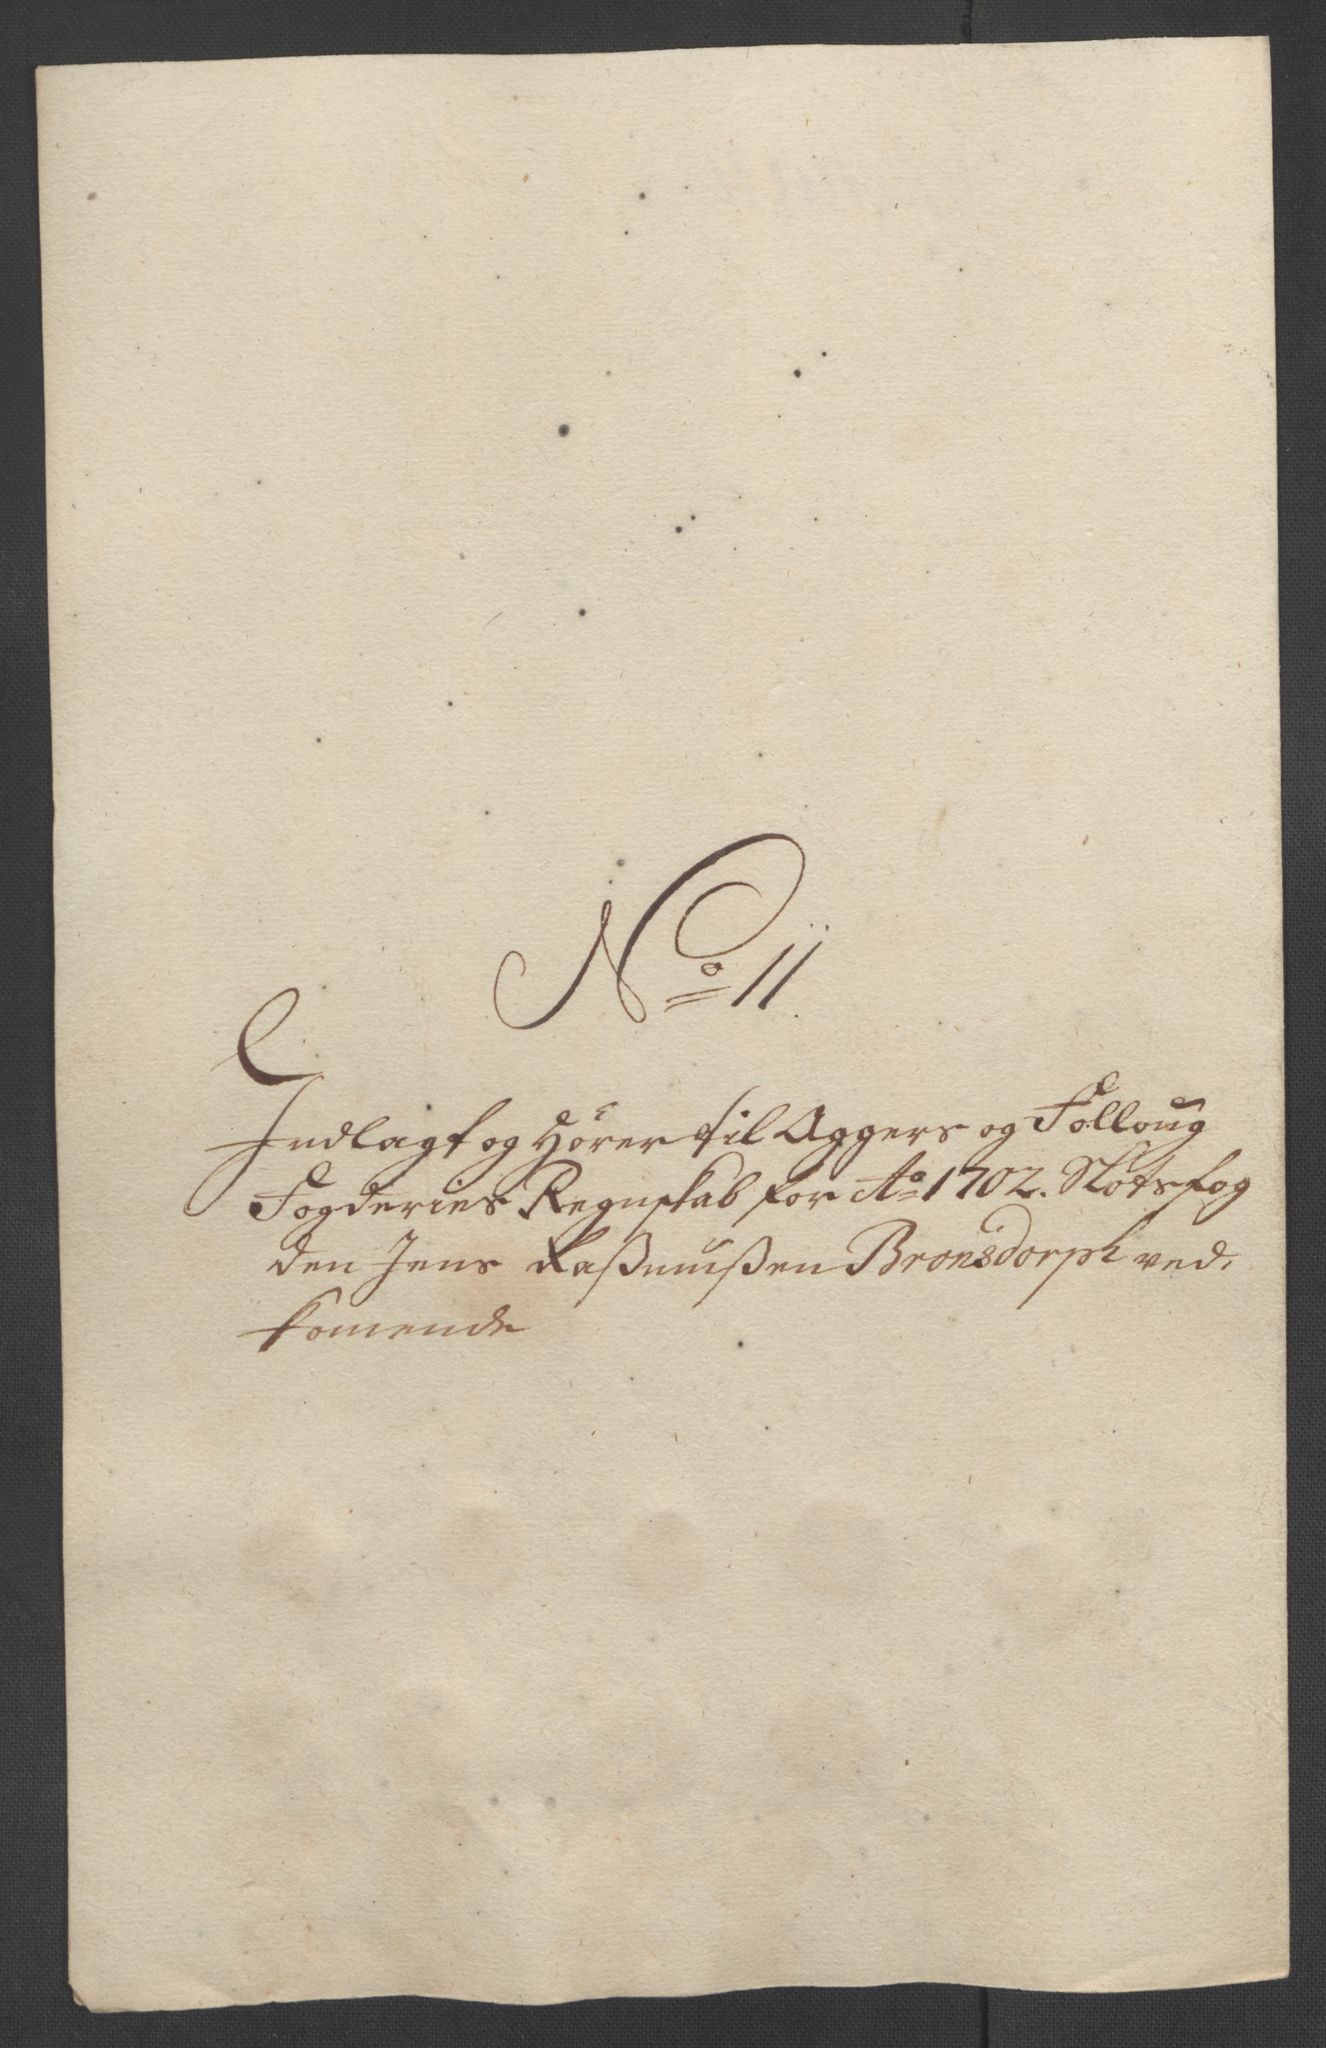 No 11
Indlagt og Hører til Aggers og Folloug
Fogderies Regnskab for Ao 1702. Slotsfog
den Jens Raßmußen Bronsdorph ved,
komende